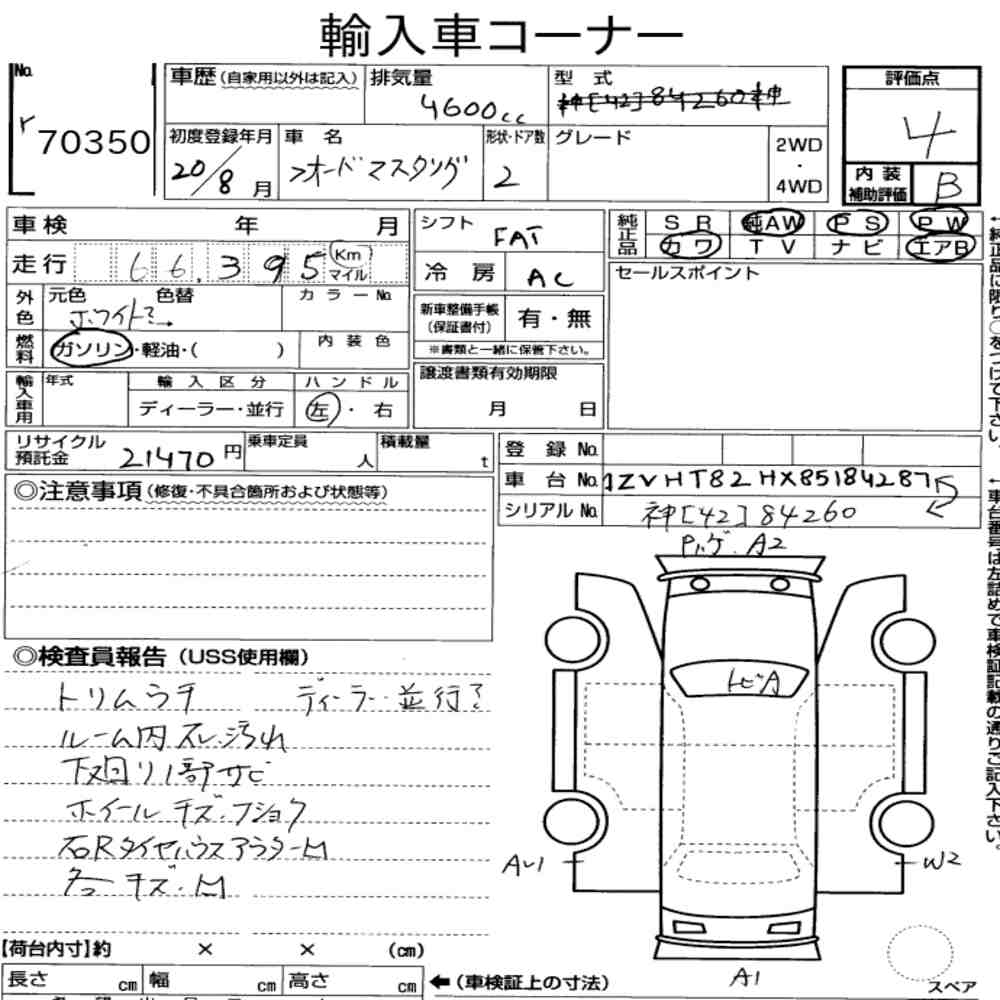 輸入車コーナー
No. r 70350
車歴(自家用以外は記入) 排気量 4600cc 型式
評価点 4
初度登録年月 20/8月 車名 フォードマスタング 形状・ドア数 2 グレード 2WD・4WD
内装補助評価 B
車検 年 月
シフト FAT
純正品 SR 純AW PS PW
カワ TV ナビ エアB
走行 66,395 Km マイル
冷房 AC
セールスポイント
外色 元色 ホワイト 色替 カラーNo.
新車整備手帳(保証書付) 有・無
※書類と一緒に保管下さい。
燃料 ガソリン・軽油・( ) 内装色
輸入車用 年式 輸入区分 ディーラー・並行 ハンドル 左・右
譲渡書類有効期限
月 日
リサイクル預託金 21470円 乗車定員 人 積載量 t
登録No.
車台No. 1ZVHT82HX85184287
シリアルNo. 神[42]84260
◎注意事項(修復・不具合箇所および状態等)
◎検査員報告(USS使用欄)
トリムウチ ディーラー並行?
ルーム内スレ、汚れ
下廻り1部サビ
ホイールキズ、フショク
右Rタイヤハウスアウターム
各キズ.
A2
トビA
W2
A1
【荷台内寸】約 × × (cm)
長さ cm 幅 cm 高さ cm ←(車検証上の寸法)
スペア
←純正品に限り○をつけて下さい。
←車台番号は左詰めで車検証記載の通りご記入下さい。